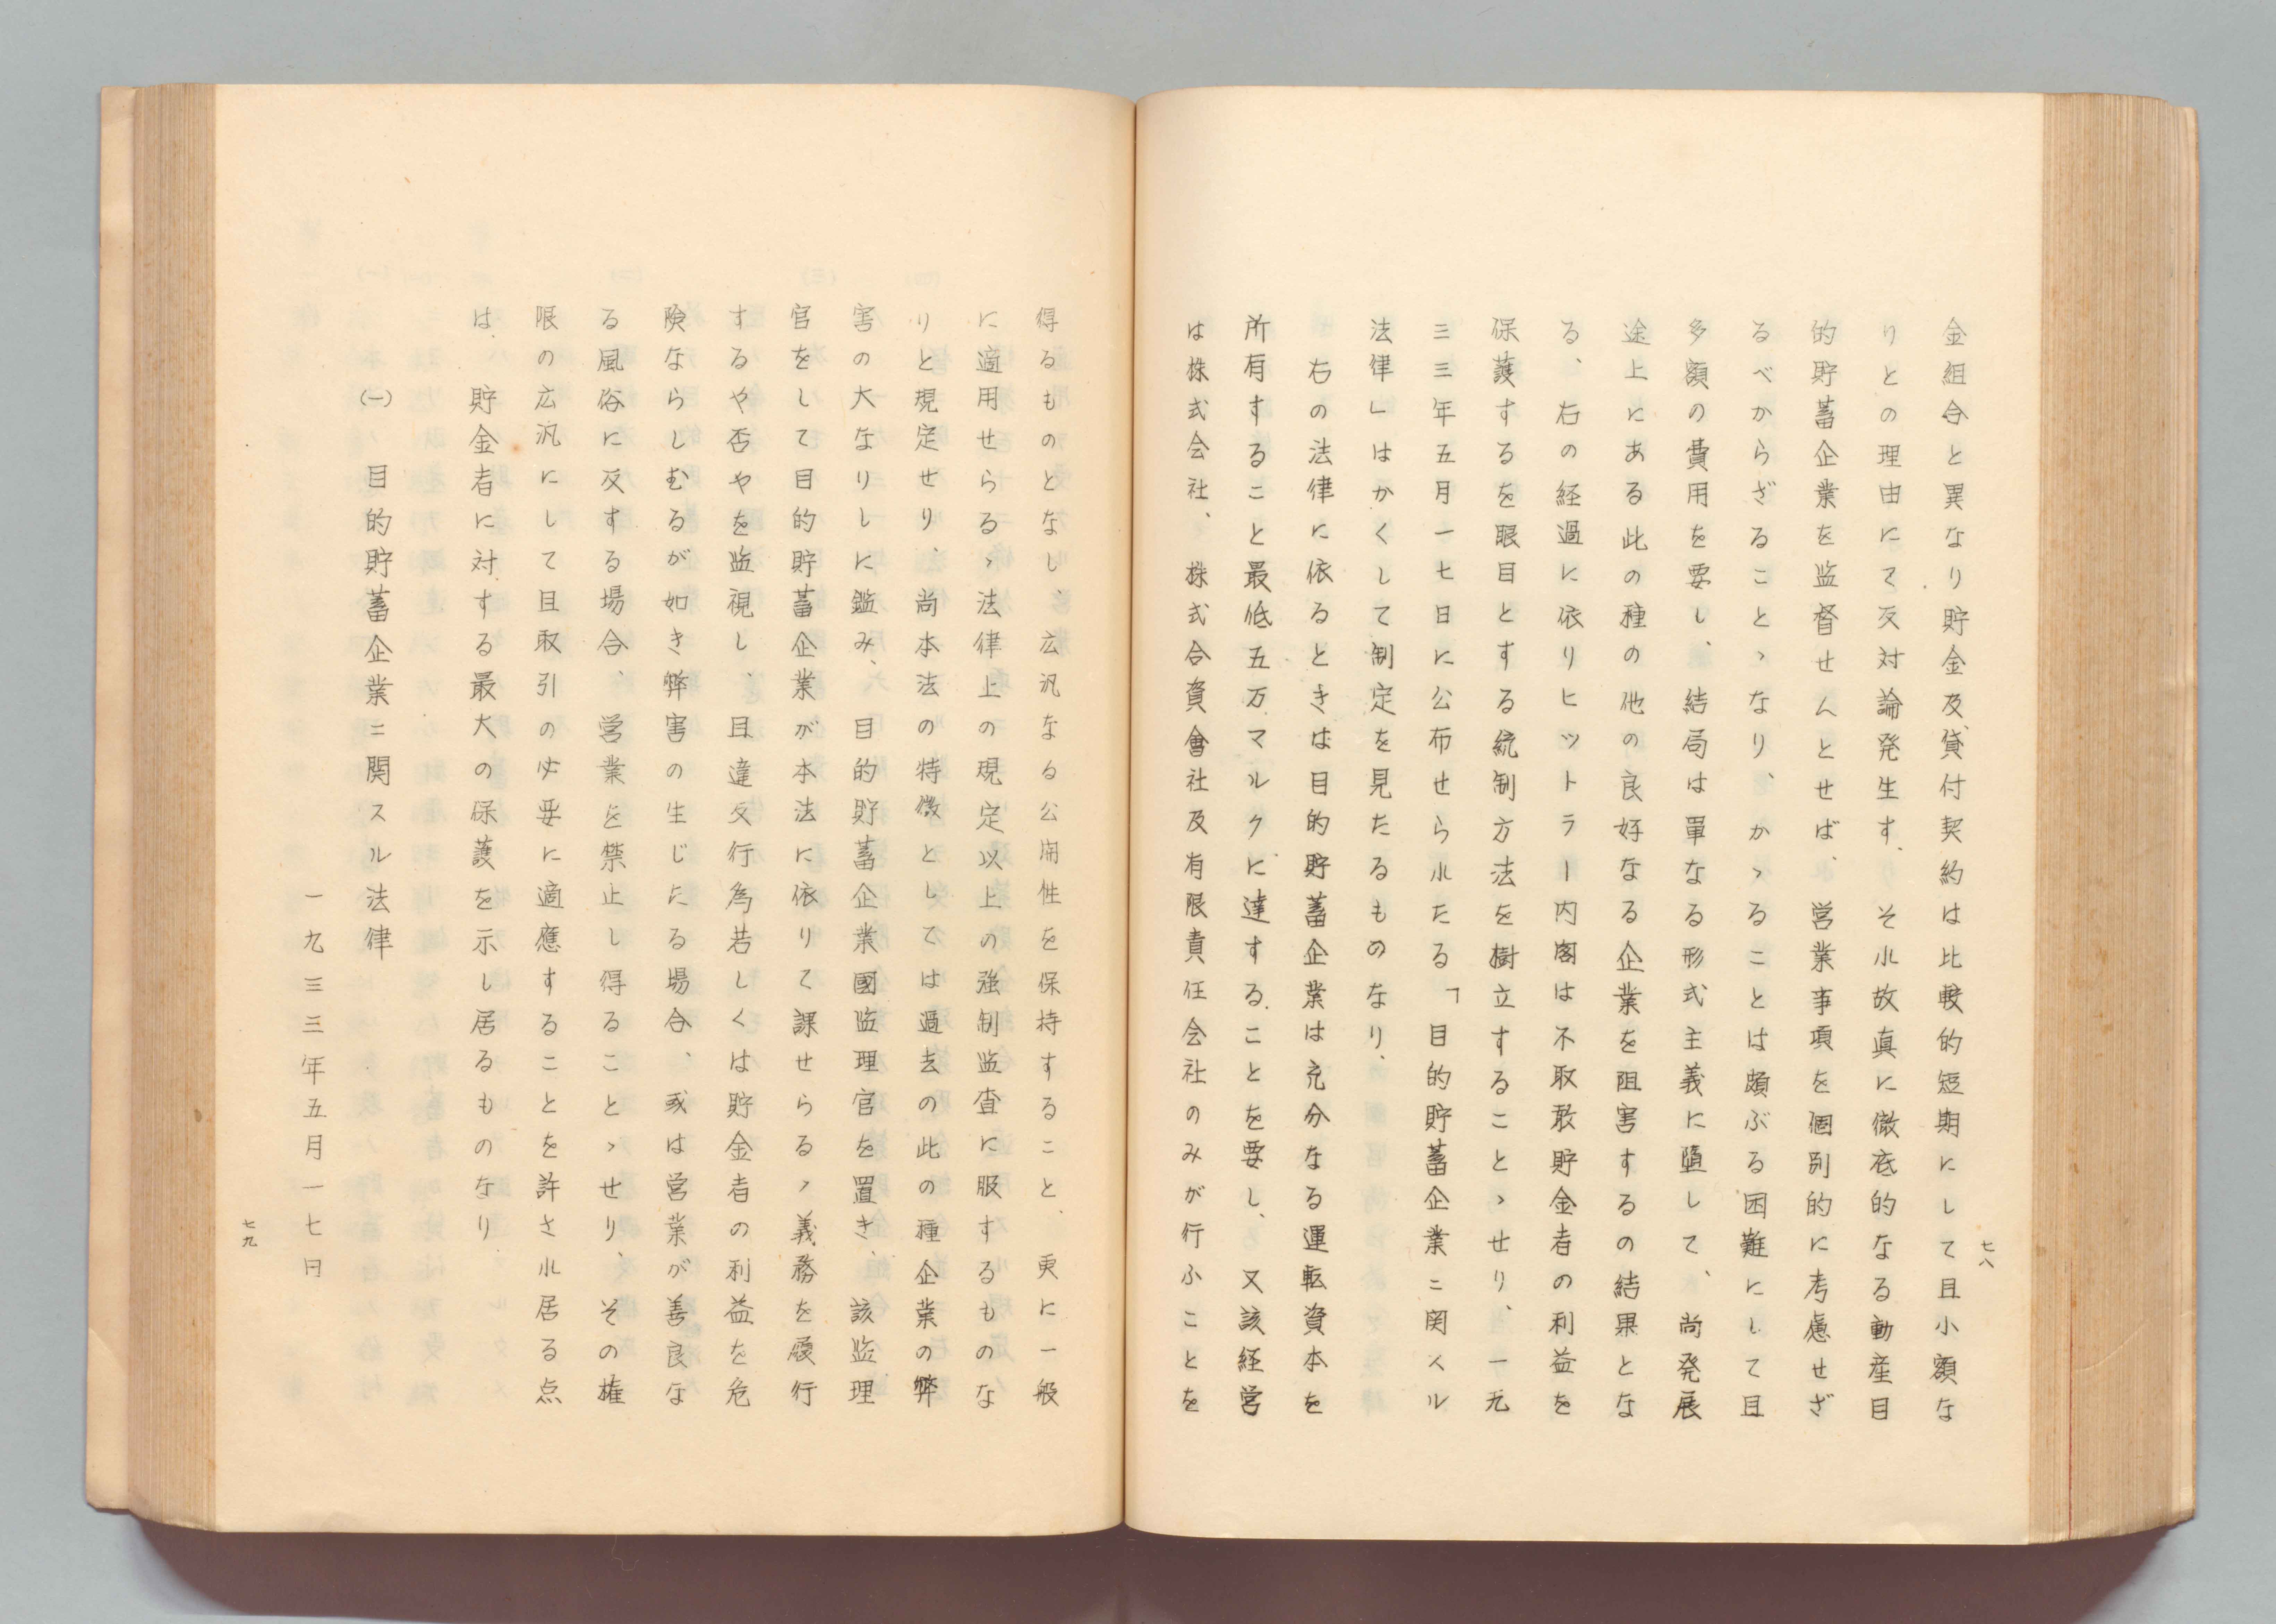 七八
金組合と異なり貯金及貸付契約は比較的短期にして且小額な
りとの理由にて反対論発生す、それ故真に徹底的なる動産目
的貯蓄企業を監督せんとせば、営業事項を個別的に考慮せざ
るべからざることゝなり、かゝることは頗ぶる困難にして且
多額の費用を要し、結局は単なる形式主義に堕して、尚発展
途上にある此の種の他の良好なる企業を阻害するの結果とな
る、右の経過に依りヒットラー内閣は不取敢貯金者の利益を
保護するを眼目とする統制方法を樹立することゝせり、一九
三三年五月一七日に公布せられたる「目的貯蓄企業ニ関スル
法律」はかくして制定を見たるものなり、
右の法律に依るときは目的貯蓄企業は充分なる運転資本を
所有すること最低五万マルクに達することを要し、又該経営
は株式会社、株式合資會社及有限責任会社のみが行ふことを
得るものとなし、広汎なる公開性を保持すること、更に一般
に適用せらるゝ法律上の規定以上の強制監査に服するものな
りと規定せり、尚本法の特徴としては過去の此の種企業の弊
害の大なりしに鑑み、目的貯蓄企業國監理官を置き、該監理
官をして目的貯蓄企業が本法に依りて課せらるゝ義務を履行
するや否やを監視し、且違反行為若しくは貯金者の利益を危
険ならしむるが如き弊害の生じたる場合、或は営業が善良な
る風俗に反する場合、営業を禁止し得ることゝせり、その権
限の広汎にして且取引の必要に適應することを許され居る点
は、貯金者に対する最大の保護を示し居るものなり
(一) 目的貯蓄企業ニ関スル法律
一九三三年五月一七日
七九